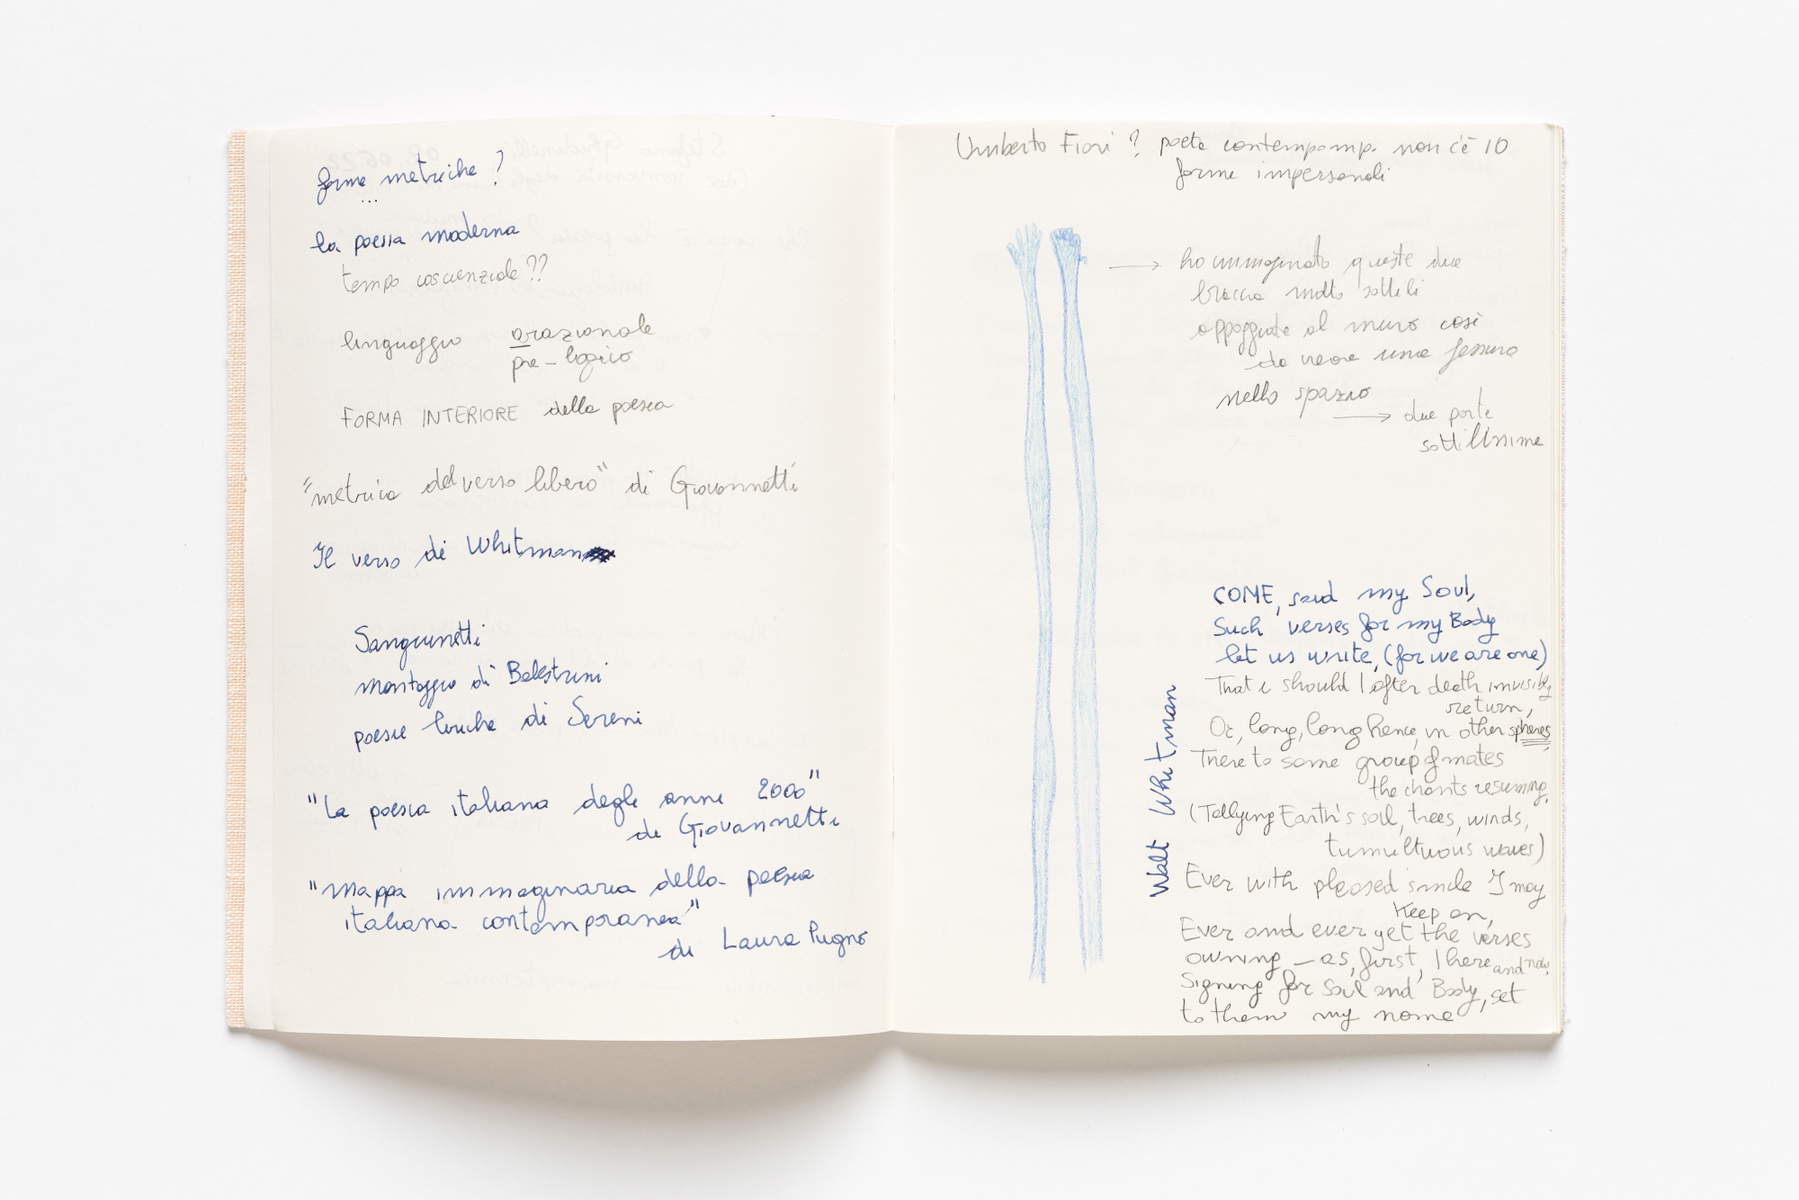 forme metriche ?
...
la poesia moderna
tempo coscienziale ??
linguaggio arazionale
pre-logico
FORMA INTERIORE della poesia
"metrica del verso libero" di Giovannetti
Il verso di Whitman
Sanguinetti
montaggio di Balestrini
poesie lunche di Sereni
"La poesia italiana degli anni 2000"
di Giovannetti
"Mappa immaginaria della poesia
italiana contemporanea"
di Laura Pugno
Umberto Fiori ? poeta contempomp. non c'è IO
forme impersonali
→ ho immaginato queste due
braccia molto sottili
appoggiate al muro così
da creare una fessura
nello spazio
→ due porte
sottilissime
COME, said my Soul,
Such verses for my Body
let us write, (for we are one)
That i should I after death invisibly
return,
Or, long, long hence, in other spheres,
There to some group of mates
the chants resuming,
(Tallying Earth's soil, trees, winds,
tumultuous waves)
Ever with pleased smile I may
keep on,
Ever and ever yet the verses
owning — as, first, I here and now,
Signing for Soul and Body, set
to them my name
Walt Whitman